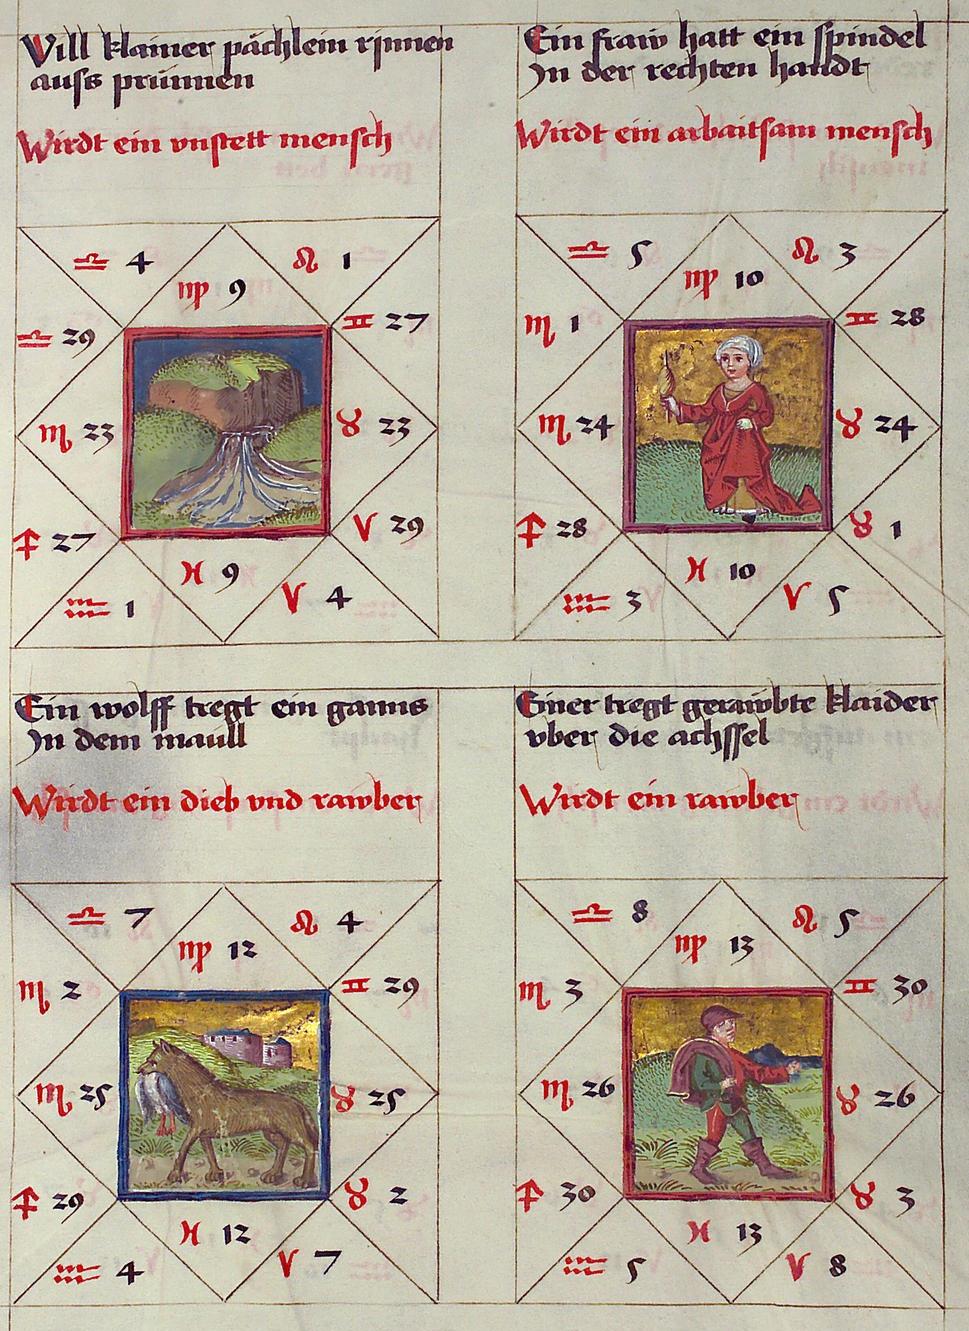 Vill klainer pächlein rinnen
auss prünnen
Wirdt ein vnstett mensch
♎ 4
♍ 9
♌ 1
♎ 29
♊ 27
♏ 23
♉ 23
♐ 27
♈ 29
♒ 1
♓ 9
♈ 4
Ein fraw hatt ein spindel
In der rechten handt
Wirdt ein arbaitsam mensch
♎ 5
♍ 10
♌ 3
♏ 1
♊ 28
♏ 24
♉ 24
♐ 28
♉ 1
♒ 3
♓ 10
♈ 5
Ein wolff tregt ein ganns
In dem maull
Wirdt ein dieb vnd rawber
♎ 7
♍ 12
♌ 4
♏ 2
♊ 29
♏ 25
♉ 25
♐ 29
♉ 2
♒ 4
♓ 12
♈ 7
Einer tregt gerawbte klaider
vber die achssel
Wirdt ein rawber
♎ 8
♍ 13
♌ 5
♏ 3
♊ 30
♏ 26
♉ 26
♐ 30
♉ 3
♒ 5
♓ 13
♈ 8